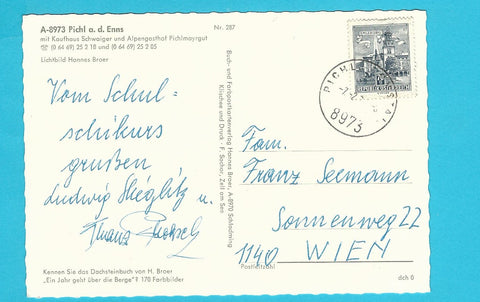 A-8973 Pichl a. d. Enns
mit Kaufhaus Schwaiger und Alpengasthof Pichlmayrgut
☎ (0 64 49) 25 2 18 und (0 64 69) 25 2 05
Lichtbild Hannes Broer
Nr. 287
Vom Schul=
schikurs
grüßen
Ludwig Stieglitz u.
Franz
Buch- und Farbpostkartenverlag Hannes Broer, A-8970 Schladming
Klischee und Druck: F. Sochor, Zell am See
PICHL
8973
REPUBLIK ÖSTERREICH
Fam.
Franz Seemann
Sonnenweg 22
1140 WIEN
Postleitzahl
Kennen Sie das Dachsteinbuch von H. Broer
„Ein Jahr geht über die Berge"? 170 Farbbilder
dch G